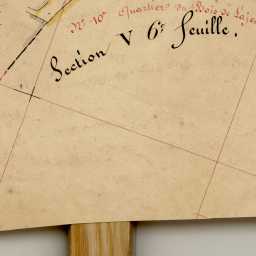 N° 10 Quartier du Bois de
Section V 6e feuille.